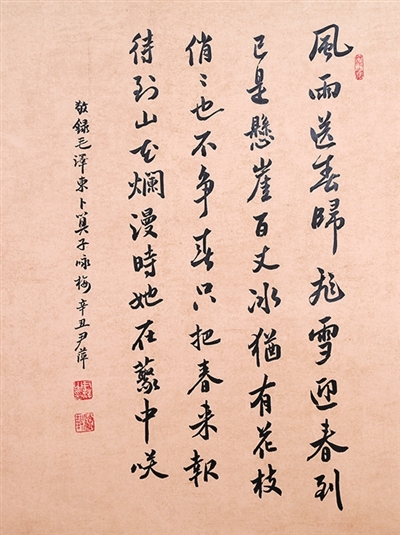 風雨送春歸飛雪迎春到
已是懸崖百丈冰猶有花枝
俏〻也不争春只把春来報
待到山花爛漫時她在藂中咲
敬録毛泽東卜算子咏梅辛丑尹萍